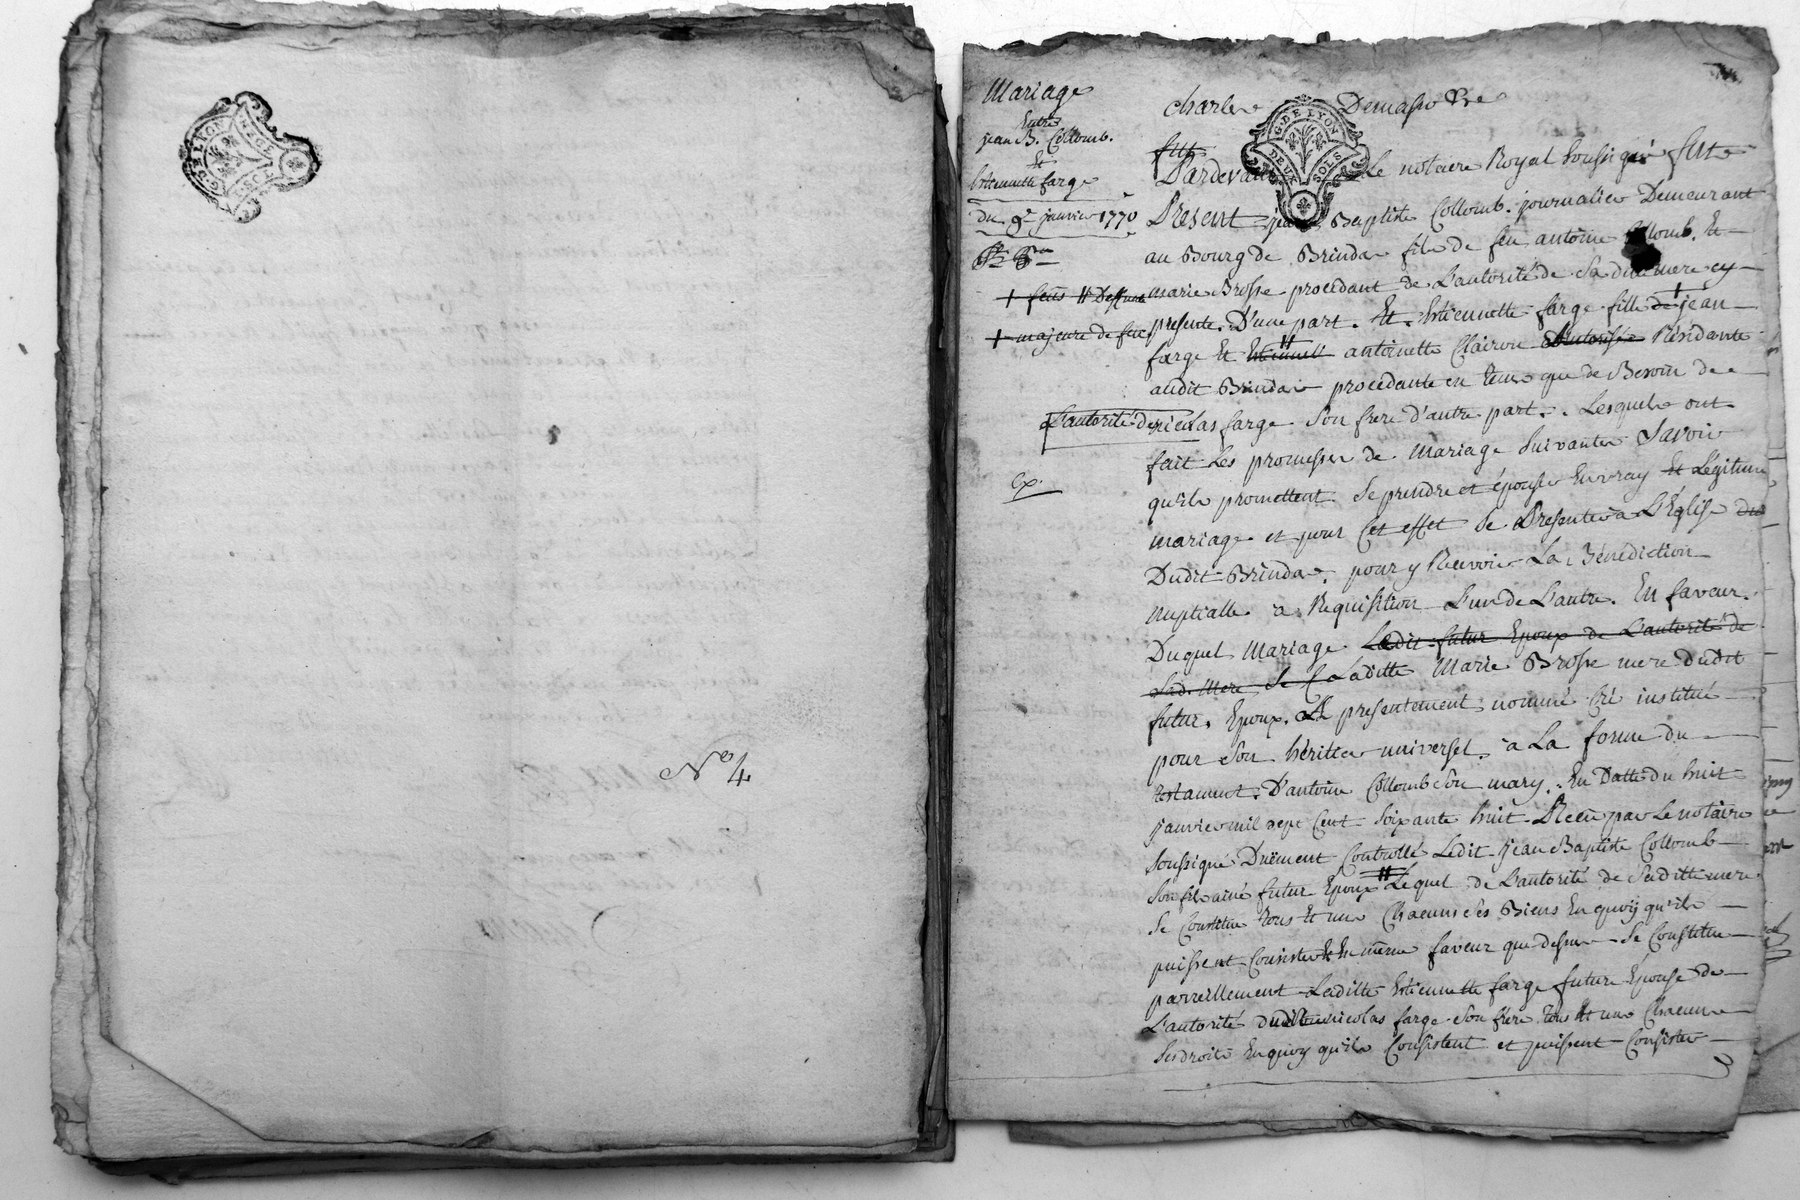 G. DE LYON
N° 4
Mariage
Entre
jean B. Collomb.
Et
Estiennette farge
du 9e janvier 1770
+ feus # Deffunt
+ majeure de feu
Ex.
charle
G. DE LYON
DEUX SOLS
Le notaire Royal soussigné fut
Present jean Baptiste Collomb. journalier Demeurant
au Bourg de Brinda fils de feu antoine Collomb. Et
marie Brosse procédant de L'autorité de Sa ditte mere cy
presente. D'une part. Et. Estiennette farge fille de + jean
farge Et antoinette Clairon Résidante
audit Brinda procédante en tems que de Besoin de
L'autorité de nicolas farge Son frere d'autre part. Lesquels ont
fait Les promesses de Mariage Suivantes Savoir
qu'ils promettent Se prendre et épouser En vray Et Légitime
mariage et pour Cet effet Se Presenter à L'Eglise du
Dudit Brinda. pour y Recevoir La Bénédiction
nuptialle a Requisition L'un de L'autre. En faveur.
Duquel Mariage Ledit futur Epoux de L'autorité de
Sad. Mere Se C Laditte Marie Brosse mere dudit
futur. Epoux. A presentement nommé Cré institué
pour Son héritier universel à La forme du
testament. D'antoine Collomb Son mary. En Datte du huit
janvier mil sept Cent Soixante huit Receu par Le notaire
Soussigné Duëment Controllé Ledit jean Baptiste Collomb
Son fils ainé futur Epoux # Lequel de L'autorité de Saditte mere
Se Constitue tous Et uns Chacuns Ses Biens En quoy qu'ils
puissent Consister Et En même faveur que dessus Se Constitue
parreillement Laditte Estiennette farge future Epouse de
L'autorité dudit nicolas farge Son frere tous Et uns Chacuns
Ses droits En quoy qu'ils Consistent et puissent Consister